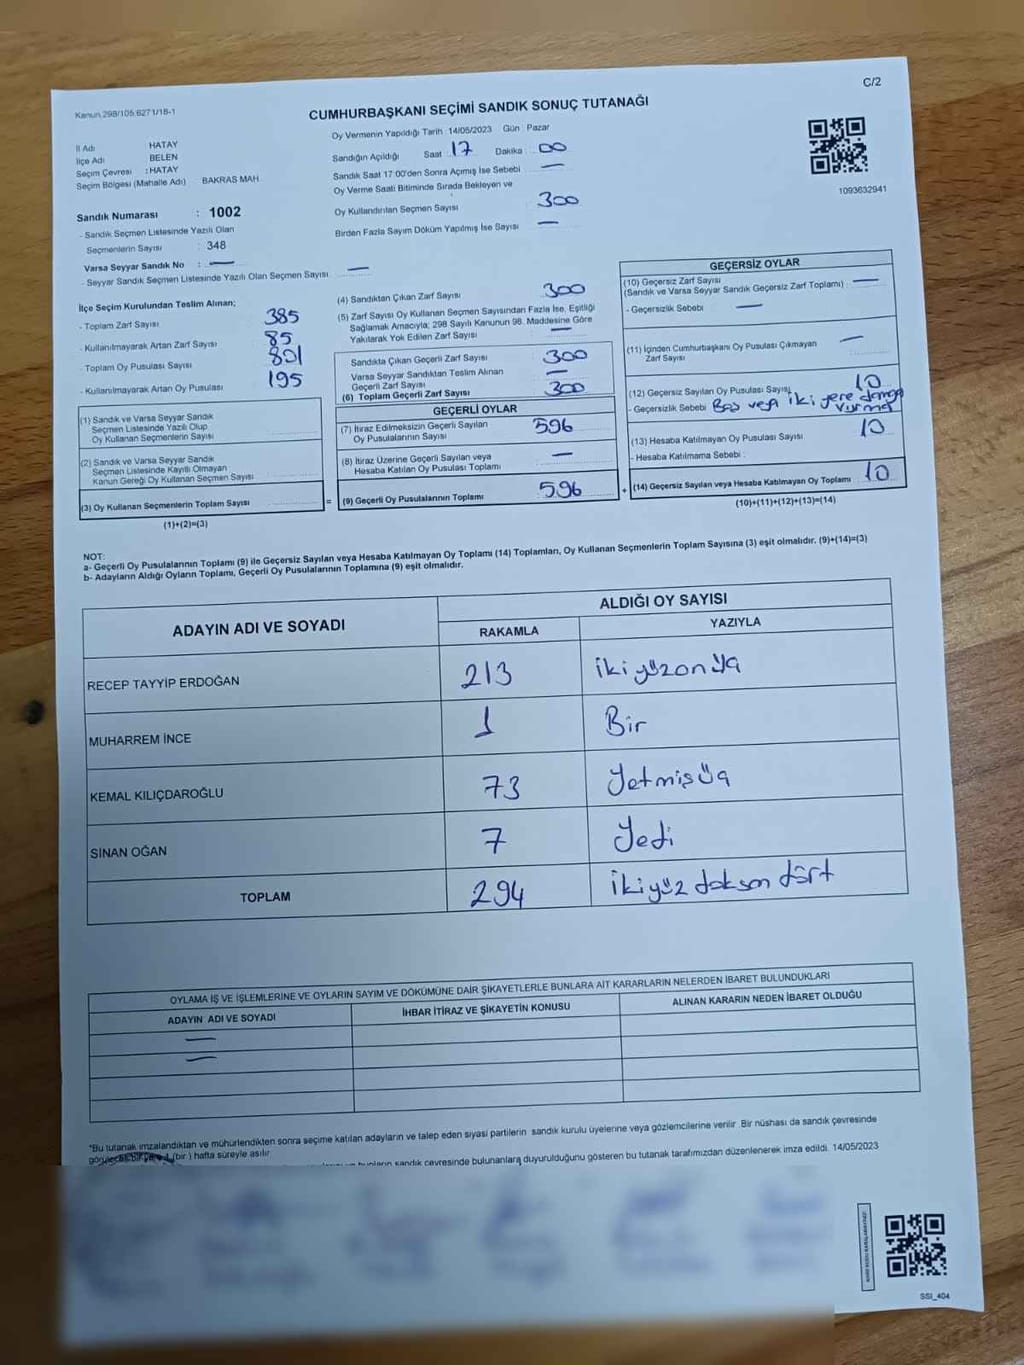 C/2
Kanun 298/105 6271/18-1
CUMHURBAŞKANI SEÇİMİ SANDIK SONUÇ TUTANAĞI
İl Adı HATAY
İlçe Adı BELEN
Seçim Çevresi : HATAY
Seçim Bölgesi (Mahalle Adı) BAKRAS MAH.
Sandık Numarası : 1002
- Sandık Seçmen Listesinde Yazılı Olan
Seçmenlerin Sayısı : 348
Varsa Seyyar Sandık No : —
- Seyyar Sandık Seçmen Listesinde Yazılı Olan Seçmen Sayısı —
Oy Vermenin Yapıldığı Tarih 14/05/2023 Gün Pazar
Sandığın Açıldığı Saat 17 Dakika 00
Sandık Saat 17:00'den Sonra Açmış İse Sebebi —
Oy Verme Saati Bitiminde Sırada Bekleyen ve
Oy Kullandırılan Seçmen Sayısı 300
Birden Fazla Sayım Döküm Yapılmış İse Sayısı —
1093632941
İlçe Seçim Kurulundan Teslim Alınan;
- Toplam Zarf Sayısı 385
- Kullanılmayarak Artan Zarf Sayısı 85
- Toplam Oy Pusulası Sayısı 801
- Kullanılmayarak Artan Oy Pusulası 195
(1) Sandık ve Varsa Seyyar Sandık
Seçmen Listesinde Yazılı Olup
Oy Kullanan Seçmenlerin Sayısı
(2) Sandık ve Varsa Seyyar Sandık
Seçmen Listesinde Kayıtlı Olmayan
Kanun Gereği Oy Kullanan Seçmen Sayısı
(3) Oy Kullanan Seçmenlerin Toplam Sayısı =
(1)+(2)=(3)
(4) Sandıktan Çıkan Zarf Sayısı 300
(5) Zarf Sayısı Oy Kullanan Seçmen Sayısından Fazla İse, Eşitliği
Sağlamak Amacıyla; 298 Sayılı Kanunun 98. Maddesine Göre
Yakılarak Yok Edilen Zarf Sayısı —
Sandıkta Çıkan Geçerli Zarf Sayısı 300
Varsa Seyyar Sandıktan Teslim Alınan
Geçerli Zarf Sayısı —
(6) Toplam Geçerli Zarf Sayısı 300
GEÇERLİ OYLAR
(7) İtiraz Edilmeksizin Geçerli Sayılan
Oy Pusulalarının Sayısı 596
(8) İtiraz Üzerine Geçerli Sayılan veya
Hesaba Katılan Oy Pusulası Toplamı —
(9) Geçerli Oy Pusulalarının Toplamı 596 +
GEÇERSİZ OYLAR
(10) Geçersiz Zarf Sayısı
(Sandık ve Varsa Seyyar Sandık Geçersiz Zarf Toplamı) : —
- Geçersizlik Sebebi : —
(11) İçinden Cumhurbaşkanı Oy Pusulası Çıkmayan
Zarf Sayısı —
(12) Geçersiz Sayılan Oy Pusulası Sayısı 10
- Geçersizlik Sebebi Boş veya iki yere damga
vurma
(13) Hesaba Katılmayan Oy Pusulası Sayısı 10
- Hesaba Katılmama Sebebi :
(14) Geçersiz Sayılan veya Hesaba Katılmayan Oy Toplamı 10
(10)+(11)+(12)+(13)=(14)
NOT:
a- Geçerli Oy Pusulalarının Toplamı (9) ile Geçersiz Sayılan veya Hesaba Katılmayan Oy Toplamı (14) Toplamları, Oy Kullanan Seçmenlerin Toplam Sayısına (3) eşit olmalıdır. (9)+(14)=(3)
b- Adayların Aldığı Oyların Toplamı, Geçerli Oy Pusulalarının Toplamına (9) eşit olmalıdır.
ADAYIN ADI VE SOYADI ALDIĞI OY SAYISI
RAKAMLA YAZIYLA
RECEP TAYYİP ERDOĞAN 213 ikiyüzonüç
MUHARREM İNCE 1 Bir
KEMAL KILIÇDAROĞLU 73 Yetmişüç
SİNAN OĞAN 7 Yedi
TOPLAM 294 ikiyüz doksan dört
OYLAMA İŞ VE İŞLEMLERİNE VE OYLARIN SAYIM VE DÖKÜMÜNE DAİR ŞİKAYETLERLE BUNLARA AİT KARARLARIN NELERDEN İBARET BULUNDUKLARI
ADAYIN ADI VE SOYADI İHBAR İTİRAZ VE ŞİKAYETİN KONUSU ALINAN KARARIN NEDEN İBARET OLDUĞU
—
—
*Bu tutanak imzalandıktan ve mühürlendikten sonra seçime katılan adayların ve talep eden siyasi partilerin sandık kurulu üyelerine veya gözlemcilerine verilir. Bir nüshası da sandık çevresinde
görülecek bir yere 1 (bir) hafta süreyle asılır.
bunların sandık çevresinde bulunanlara duyurulduğunu gösteren bu tutanak tarafımızdan düzenlenerek imza edildi. 14/05/2023
SSI_404